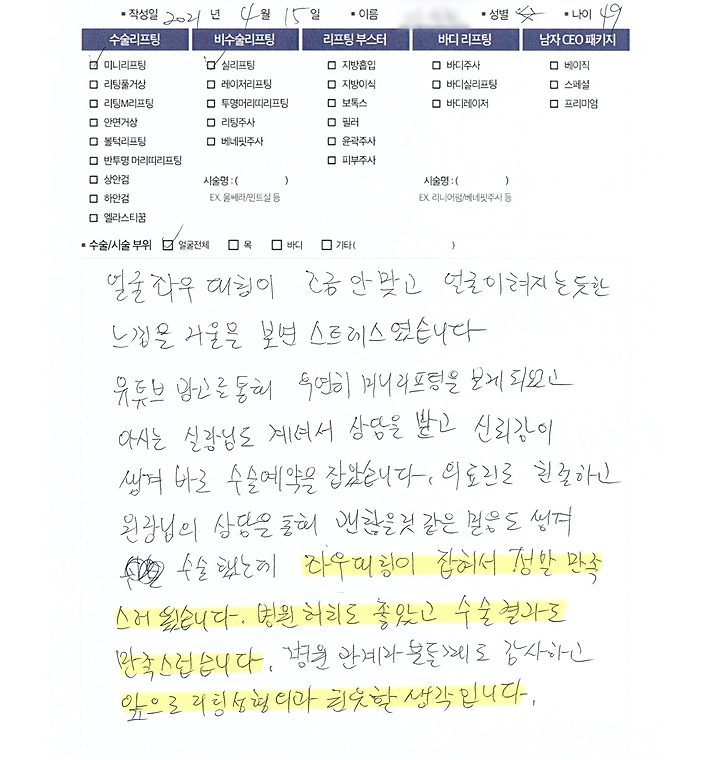 작성일 2021 년 4 월 15 일 이름 성별 나이 49
수술리프팅 비수술리프팅 리프팅 부스터 바디 리프팅 남자 CEO 패키지
미니리프팅 실리프팅 지방흡입 바디주사 베이직
리팅풀거상 레이저리프팅 지방이식 바디실리프팅 스페셜
리팅M리프팅 투명머리띠리프팅 보톡스 바디레이저 프리미엄
안면거상 리팅주사 필러
볼턱리프팅 베네핏주사 윤곽주사
반투명 머리띠리프팅 피부주사
상안검 시술명 : ( ) 시술명 : ( )
하안검 EX. 울쎄라/민트실 등 EX. 리니어펌/베네핏주사 등
엘라스티꿈
수술/시술 부위 얼굴전체 목 바디 기타 ( )
얼굴 좌우 대칭이 조금 안 맞고 얼굴이 쳐지는듯한
느낌을 거울을 보면 스트레스였습니다
유튜브 광고를 통해 우연히 미니리프팅을 보게 되었고
아시는 실장님도 계셔서 상담을 받고 신뢰감이
생겨 바로 수술예약을 잡았습니다. 의료진도 친절하고
원장님의 상담을 통해 괜찮을것 같은 믿음도 생겨
수술 했는데 좌우대칭이 잡혀서 정말 만족
스러웠습니다. 병원 처치도 좋았고 수술결과도
만족스럽습니다. 병원 관계자 분들께도 감사하고
앞으로 리팅성형외과 팬웃할 생각입니다.